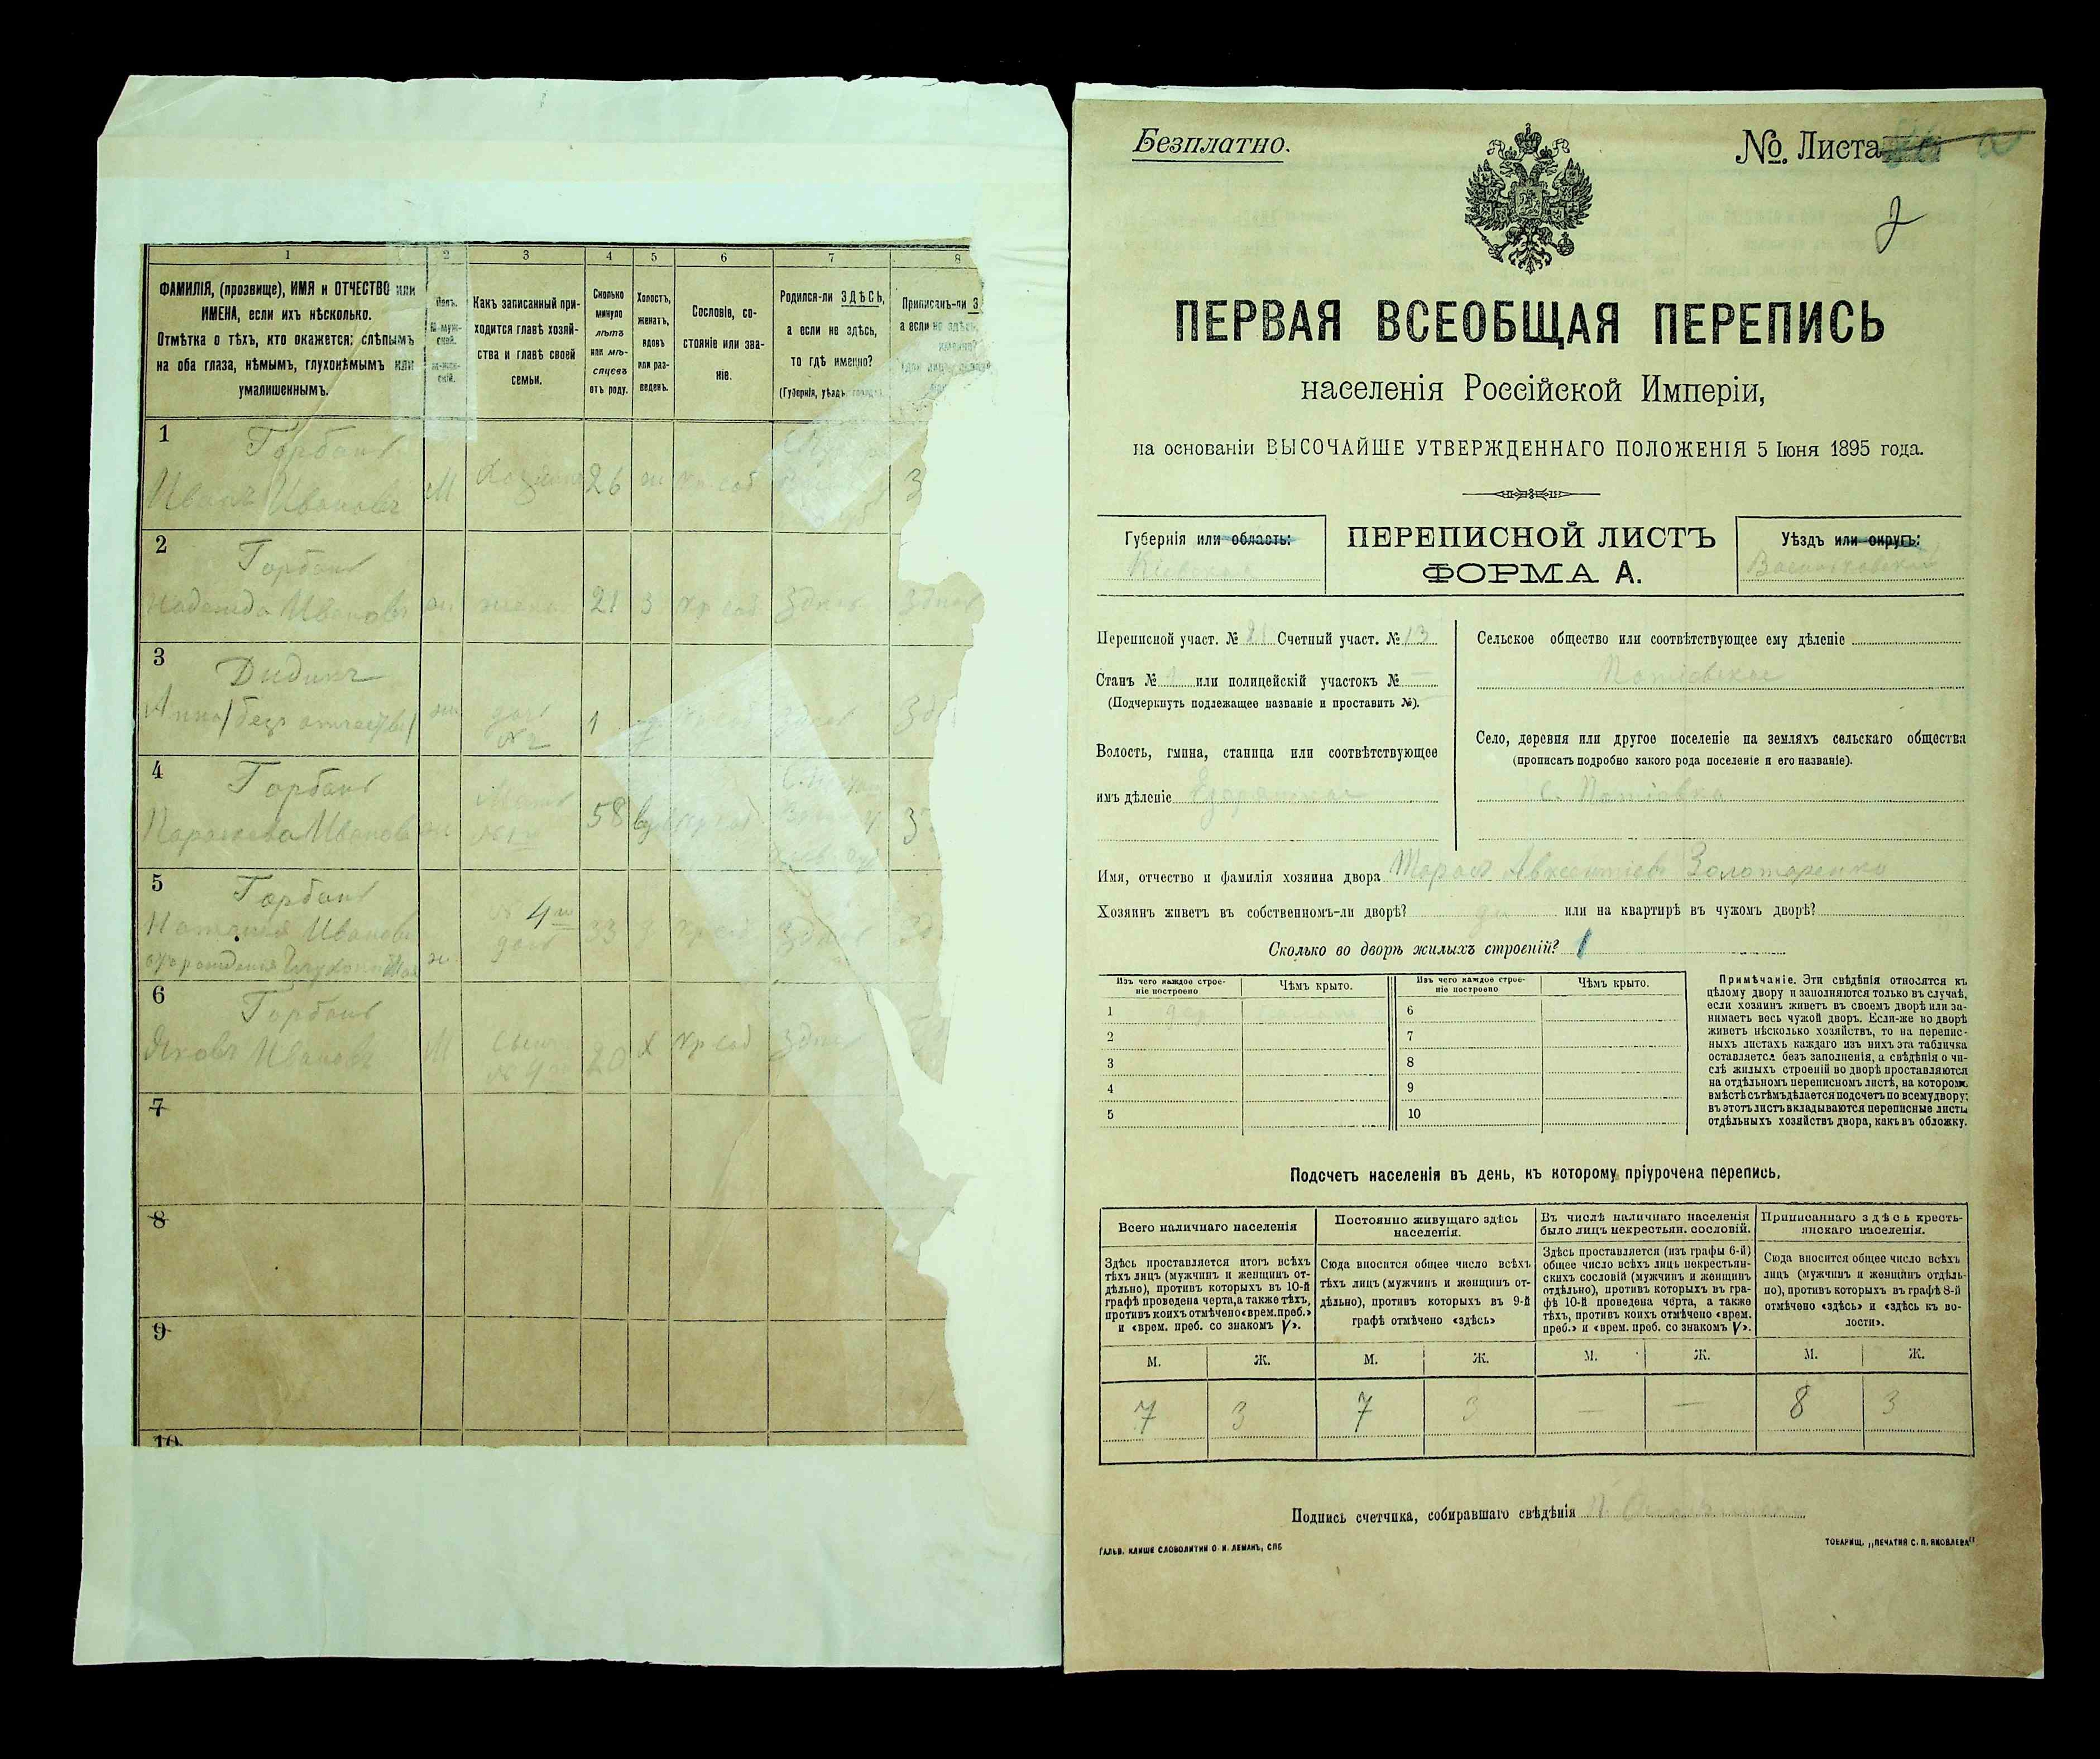 1 2 3 4 5 6 7 8
ФАМИЛІЯ, (прозвище), ИМЯ и ОТЧЕСТВО или
ИМЕНА, если ихъ нѣсколько.
Отмѣтка о тѣхъ, кто окажется: слѣпымъ
на оба глаза, нѣмымъ, глухонѣмымъ или
умалишеннымъ.
Полъ.
М-муж-
ской.
Ж-жен-
скій.
Какъ записанный при-
ходится главѣ хозяй-
ства и главѣ своей
семьи.
Сколько
минуло
лѣтъ
или мѣ-
сяцевъ
отъ роду.
Холостъ,
женатъ,
вдовъ
или раз-
веденъ.
Сословіе, со-
стояніе или зва-
ніе.
Родился-ли ЗДѢСЬ,
а если не здѣсь,
то гдѣ именно?
(Губернія, уѣздъ, городъ)
Приписанъ-ли З
а если не здѣсь,
1 Горбань
Иванъ Ивановъ М Хозяинъ 26 ж кр соб З
2 Горбань
Надежда Иванов ж жена 21 З кр соб Здѣсь Здѣсь
3 Дидикъ
Анна (безъ отчества) ж дочь 1 Здѣсь
№ 2
4 Горбань
Параскева Иванов ж Мать 58 кр соб
5 Горбань
Наталія Иванов № 4 33 кр соб Здѣсь
отъ рожденія ж дочь
6 Горбань
Яковъ Ивановъ М сынъ 20 Х кр соб Здѣсь
7
8
9
10
Безплатно.
№. Листа
2
ПЕРВАЯ ВСЕОБЩАЯ ПЕРЕПИСЬ
населенія Россійской Имперіи,
на основаніи ВЫСОЧАЙШЕ УТВЕРЖДЕННАГО ПОЛОЖЕНІЯ 5 Іюня 1895 года.
Губернія или область:
Кіевская
ПЕРЕПИСНОЙ ЛИСТЪ
ФОРМА А.
Уѣздъ или округъ:
Васильковскій
Переписной участ. № 21 Счетный участ. № 13
Станъ № или полицейскій участокъ № —
(Подчеркнуть подлежащее названіе и проставить №).
Волость, гмина, станица или соотвѣтствующее
имъ дѣленіе
Сельское общество или соотвѣтствующее ему дѣленіе
Потіевское
Село, деревня или другое поселеніе на земляхъ сельскаго общества
(прописать подробно какого рода поселеніе и его названіе).
с. Потіевка
Имя, отчество и фамилія хозяина двора Тарасъ Авксентіевъ Золотаренко
Хозяинъ живетъ въ собственномъ-ли дворѣ? да или на квартирѣ въ чужомъ дворѣ?
Сколько во дворѣ жилыхъ строеній? 1
Изъ чего каждое строе-
ніе построено
Чѣмъ крыто.
Изъ чего каждое строе-
ніе построено
Чѣмъ крыто.
1 дер 6
2 7
3 8
4 9
5 10
Примѣчаніе. Эти свѣдѣнія относятся къ
цѣлому двору и заполняются только въ случаѣ,
если хозяинъ живетъ въ своемъ дворѣ или за-
нимаетъ весь чужой дворъ. Если-же во дворѣ
живетъ нѣсколько хозяйствъ, то на перепис-
ныхъ листахъ каждаго изъ нихъ эта табличка
оставляется безъ заполненія, а свѣдѣнія о чи-
слѣ жилыхъ строеній во дворѣ проставляются
на отдѣльномъ переписномъ листѣ, на которомъ
вмѣстѣ съ тѣмъ дѣлается подсчетъ по всему двору;
въ этотъ листъ вкладываются переписные листы
отдѣльныхъ хозяйствъ двора, какъ въ обложку.
Подсчетъ населенія въ день, къ которому пріурочена перепись.
Всего наличнаго населенія
Здѣсь проставляется итогъ всѣхъ
тѣхъ лицъ (мужчинъ и женщинъ от-
дѣльно), противъ которыхъ въ 10-й
графѣ проведена черта, а также тѣхъ,
противъ коихъ отмѣчено «врем. преб.»
и «врем. преб. со знакомъ V».
Постоянно живущаго здѣсь
населенія.
Сюда вносится общее число всѣхъ
тѣхъ лицъ (мужчинъ и женщинъ от-
дѣльно), противъ которыхъ въ 9-й
графѣ отмѣчено «здѣсь»
Въ числѣ наличнаго населенія
было лицъ некрестьян. сословій.
Здѣсь проставляется (изъ графы 6-й)
общее число всѣхъ лицъ некрестьян-
скихъ сословій (мужчинъ и женщинъ
отдѣльно), противъ которыхъ въ гра-
фѣ 10-й проведена черта, а также
тѣхъ, противъ коихъ отмѣчено «врем.
преб.» и «врем. преб. со знакомъ V».
Приписаннаго здѣсь кресть-
янскаго населенія.
Сюда вносится общее число всѣхъ
лицъ (мужчинъ и женщинъ отдѣль-
но), противъ которыхъ въ графѣ 8-й
отмѣчено «здѣсь» и «здѣсь къ во-
лости».
М. Ж. М. Ж. М. Ж. М. Ж.
7 3 7 3 — — 8 3
Подпись счетчика, собиравшаго свѣдѣнія
ГАЛЬВ. КЛИШЕ СЛОВОЛИТНИ О. И. ЛЕМАНЪ, СПБ
ТОВАРИЩ. „ПЕЧАТНЯ С. П. ЯКОВЛЕВА"